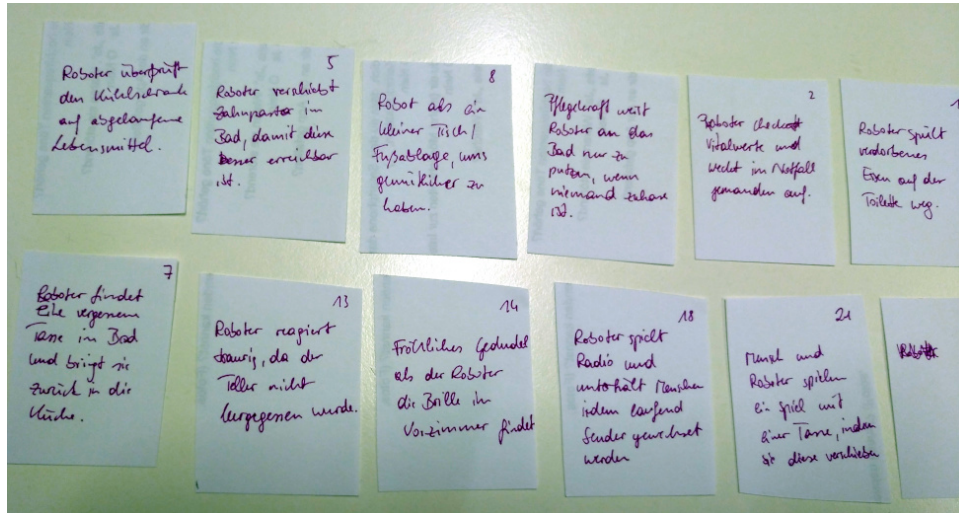 Roboter überprüft
den Kühlschrank
auf abgelaufene
Lebensmittel.
5
Roboter verschiebt
Zahnpasta im
Bad, damit diese
besser erreichbar
ist.
8
Robot als ein
kleiner Tisch/
Fußablage, ums
gemütlicher zu
haben.
Pflegekraft weist
Roboter an das
Bad nur zu
putzen, wenn
niemand zuhase
ist.
2
Roboter checkt
Vitalwerte und
weckt im Notfall
jemanden auf.
1
Roboter spült
verdorbenes
Essen auf der
Toilette weg.
7
Roboter findet
eine vergessene
Tasse im Bad
und bringt sie
zurück in die
Küche.
13
Roboter reagiert
traurig, da der
Teller nicht
leergegessen wurde.
14
Fröhliches Gedudel
als der Roboter
die Brille im
Vorzimmer findet
18
Roboter spielt
Radio und
unterhält Menschen
indem laufend
Sender gewechselt
werden
21
Mensch und
Roboter spielen
ein Spiel mit
einer Tasse, indem
sie diese verschieben